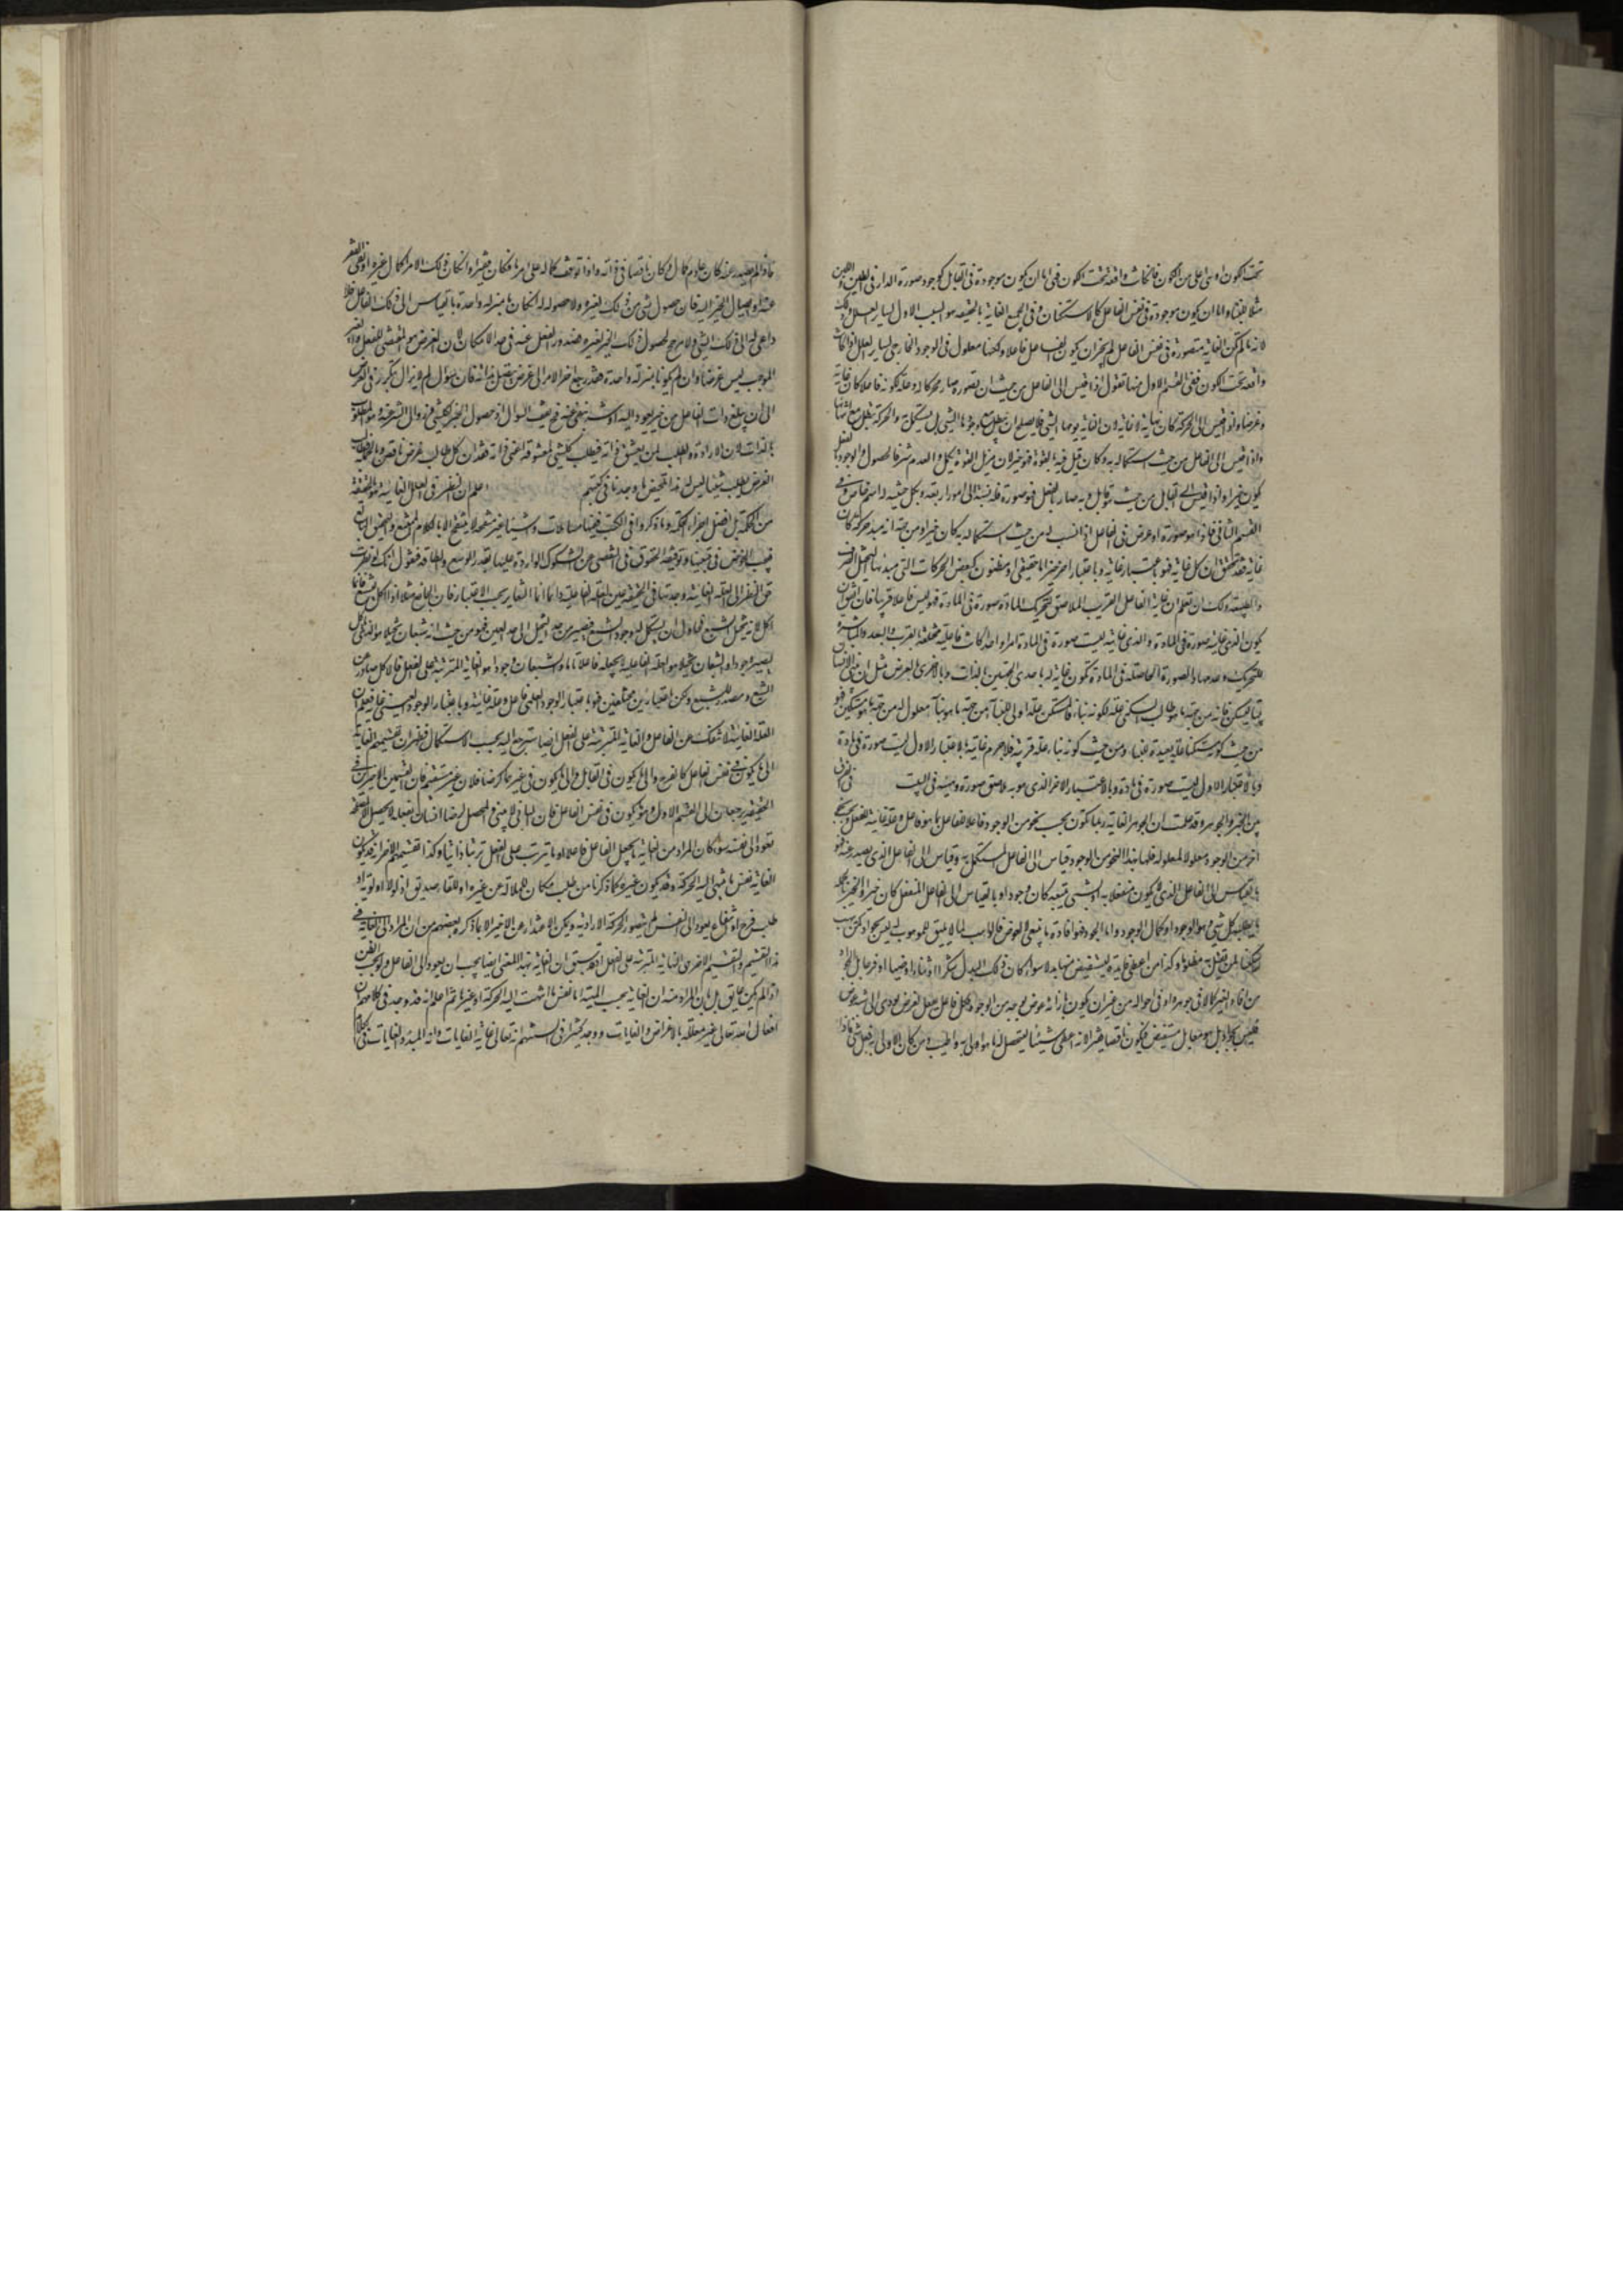 تحت الكون او هى اعلى من الكون فان كانت واقعة تحت الكون فهى اما ان يكون موجودة فى القابل كوجود صورة الدار فى الطين واللبن
مثلا للبناء واما ان يكون موجودة فى نفس الفاعل كالاستكنان وفى الجميع الغاية بالحقيقة هو السبب الاول لساير العلل وذلك
لانه ما لم تكن الغاية متصورة فى نفس الفاعل لم يجز ان يكون الفاعل فاعلا ولكنها معلول فى الوجود الخارجى لساير العلل اذا كانت
واقعة تحت الكون ففى القسم الاول منها نقول اذا قيس الى الفاعل من حيث ان تصوره صار محركا له وعلة لكونه فاعلا كان غاية
وغرضا واذا قيس الى الحركة كان نهاية لا غاية لان الغاية يؤمها الشىء فلا يصلح ان يبطل مع وجودها الشىء بل يستكمل به والحركة تبطل مع انتهائها
واذا قيس الى الفاعل من حيث استكماله به وكان قبل فيه بالقوة فهو خير لان مزيل القوة مكمل والعدم شر فالحصول والوجود بالفعل
يكون خيرا واذا قيس الى القابل من حيث هو قابل وبه صار بالفعل فهو صورة فله نسبة الى امور اربعة وبكل حيثية له اسم خاص وفى
القسم الثانى فاذا هو صورة او عرض فى الفاعل اذا انسب له من حيث استكماله به كان خيرا ومن جهة انه مبدء حركته كان
غاية فقد تحقق ان كل غاية فهو باعتبار غاية وباعتبار آخر خير اما حقيقى او مظنون كبعض الحركات التى مبدئها التخيل الصرف
والطبيعة ولك ان تعلم ان غاية الفاعل القريب الملاصق لتحريك المادة صورة فى المادة فهو ليس فاعلا قريبا فان اتفق ان
يكون الذى غايته صورة فى المادة والذى غايته ليست صورة فى المادة امرا واحدا كانت فاعليته مختلفة بالقرب والبعد والمباشرة
للتحريك وعدمها والصورة الحاصلة فى المادة تكون غاية له باحدى الجهتين بالذات وبالاخرى بالعرض مثل ان يبنى الانسان
بيتا ليسكن فانه من جهة ما هو طالب السكنى علة لكونه بناء فالمستكن علة اولى للبناء من جهة ما هو بناء معلول له من جهة ما هو مستكن فهو
من حيث كونه مستكنا علة بعيدة للبناء ومن حيث كونه بناء علة قريبة فلا جرم غايته بالاعتبار الاول ليست صورة فى مادة
وبالاعتبار الاول ليست صورة فى مادة وبالاعتبار الاخر الذى هو به ملاصق صورة وهيئة فى البيت فى الفرق
بين الخير والجود وقد علمت ان الجود
اخر من الوجود معلولا لمعلوله فلها بهذا النحو من الوجود قياس الى الفاعل المستكمل به وقياس الى الفاعل الذى يصدر عنه فهو
بالقياس الى الفاعل الذى لا يكون منفعلا به او بشىء يتبعه كان وجودا وبالقياس الى الفاعل المنفعل كان خيرا والخير بالجملة
ما يطلبه كل شىء وهو الوجود او كمال الوجود واما الجود فهو افادة ما ينبغى لا لعوض فالواهب لما لا يليق للموهوب له ليس بجواد كمن يهب
سكينا لمن يقتل به مظلوما وكذا من اعطى فايدة ليستفيض منها بدلا سواء كان ذلك البدل شكرا او ثناء او صيتا او فرحا بل الجود
من افاد الغير كمالا فى جوهره او فى احواله من غير ان يكون بازائه عوض بوجه من الوجوه فكل فاعل يفعل لغرض يؤدى الى شبه عوض
فليس بجواد بل هو معامل مستفيض فيكون ناقصا فقيرا لانه اعطى شيئا ليتحصل له ما هو اولى به واطيب ومن كان الاولى به فعل شىء فاذا
فاذا لم يصدر عنه كان عادم كمال وكان ناقصا فى ذاته واذا توقف كماله على امر ما فكان فقيرا وان كان ذلك الامر كمال غيره او نفى الفقر
عنه او ايصال الخير اليه فان حصول شىء من ذلك لغيره ولا حصوله له ان كان بمنزلة واحدة بالقياس الى ذلك الفاعل فلا
داعى له الى ذلك الشىء ولا مرجح لحصول ذلك الخير لغيره فصدور الفعل عنه فى حد الامكان لان الغرض هو المقتضى للفعل والغير
الموجب ليس غرضا وان لم يكونا بمنزلة واحدة فقد رجع آخر الامر الى غرض متصل بذاته فان سؤال لم لا يزال يتكرر فى الغرض
الى ان يبلغ ذات الفاعل من خير يعود اليه او شر ينتفى عنه فح يقف السؤال اذ حصول الخير لكل شىء وزوال الشر عنه هو المطلوب
بالذات لان الارادة والطلب لمن يعشق ذاته فيطلب كل شىء لمعشوقه اعنى ذاته فقد بان ان كل طالب غرض ناقص وبالجملة فطلب
الغرض يطلب شيئا ليس له هذا تلخيص ما وجدنا فى كتبهم اعلم ان النظر فى العلل الغائية هو بالحقيقة
من الحكمة بل افضل اجزاء الحكمة وما ذكروا فى الكتب فيها مساهلات واشياء غير منقحة لا ينقح الا بالكلام المشبع والتحقيق البالغ
فيجب الخوض فى تبيينها وتوفية الحقوق فى التفصى عن الشكوك الواردة عليها بقدر الوسع والطاقة فنقول انك لو نظرت
حق النظر الى العلة الغائية وجدتها فى الحقيقة عين العلة الفاعلية دائما انما التغاير بحسب الاعتبار فان الجايع مثلا اذا اكل ليشبع فانما
اكل لانه تخيل الشبع فحاول ان يستكمل له وجود الشبع فيصير من حد التخيل الى حد العين فهو من حيث انه شبعان تخيلا هو الذى ياكل
ليصير وجودا والشبعان تخيلا هو العلة الفاعلية لما يجعله فاعلا تاما والشبعان وجودا هو الغاية المترتبة على الفعل فالاكل صادر عن
الشبع ومصدر للشبع ولكن باعتبارين مختلفين فهو باعتبار الوجود العلمى فاعل وعلة غائية وباعتبار الوجود العينى غاية فعلم ان
العلة الغائية لا تنفك عن الفاعل والغاية المترتبة على الفعل ايضا سترجع اليه بحسب الاستكمال فظهر ان تقسيمهم الغاية
الى ما يكون فى نفس الفاعل كالفرح والى ما يكون فى القابل والى ما يكون فى غيرهما كرضا فلان غير مستقيم فان القسمين الاخيرين فى
الحقيقة يرجعان الى القسم الاول وهو ما يكون فى نفس الفاعل فان البانى لا يبنى والمحصل لرضاء انسان بفعله لا يحصل الا لمصلحة
تعود الى نفسه سواء كان المراد من الغاية ما يجعل الفاعل فاعلا او ما يترتب على الفعل ترتبا ذاتيا وكذا تقسيمهم الاخر انه قد يكون
الغاية نفس ما ينتهى اليه الحركة وقد يكون غيره كما ذكرنا من طلب مكان للملالة عن غيره او للقاء صديق اذ لولا اولوية او
طلب فرح او شغل يعود الى النفس لم يتصور الحركة الارادية ويمكن الاعتذار عن الاخير لا بما ذكره بعضهم من ان المراد من الغاية فى
هذا التقسيم والتقسيم الاخر هى الغاية المترتبة على الفعل
اذا لم يكن عايق بل بان المراد منه ان الغاية بحسب المهية اما نفس ما انتهت اليه الحركة او غيره ثم اعلم انه قد وجد فى كلامهم ان
افعال الله تعالى غير معللة بالاغراض والغايات ووجد كثيرا فى السنتهم انه تعالى غاية الغايات وانه المبدء والغاية